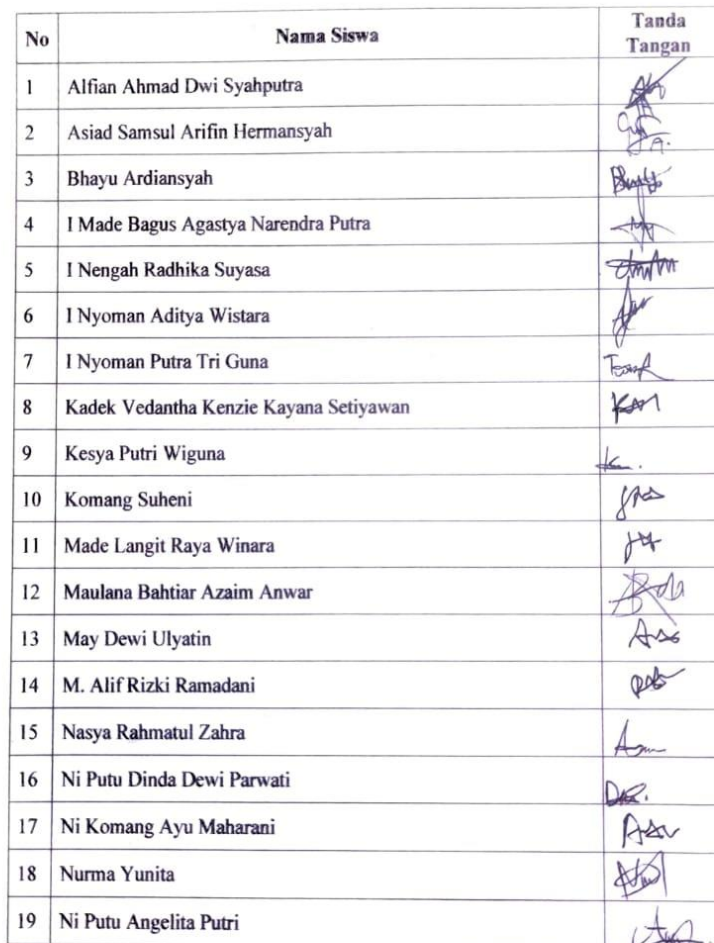 No Nama Siswa Tanda Tangan
1 Alfian Ahmad Dwi Syahputra
2 Asiad Samsul Arifin Hermansyah
3 Bhayu Ardiansyah
4 I Made Bagus Agastya Narendra Putra
5 I Nengah Radhika Suyasa
6 I Nyoman Aditya Wistara
7 I Nyoman Putra Tri Guna
8 Kadek Vedantha Kenzie Kayana Setiyawan
9 Kesya Putri Wiguna
10 Komang Suheni
11 Made Langit Raya Winara
12 Maulana Bahtiar Azaim Anwar
13 May Dewi Ulyatin
14 M. Alif Rizki Ramadani
15 Nasya Rahmatul Zahra
16 Ni Putu Dinda Dewi Parwati
17 Ni Komang Ayu Maharani
18 Nurma Yunita
19 Ni Putu Angelita Putri